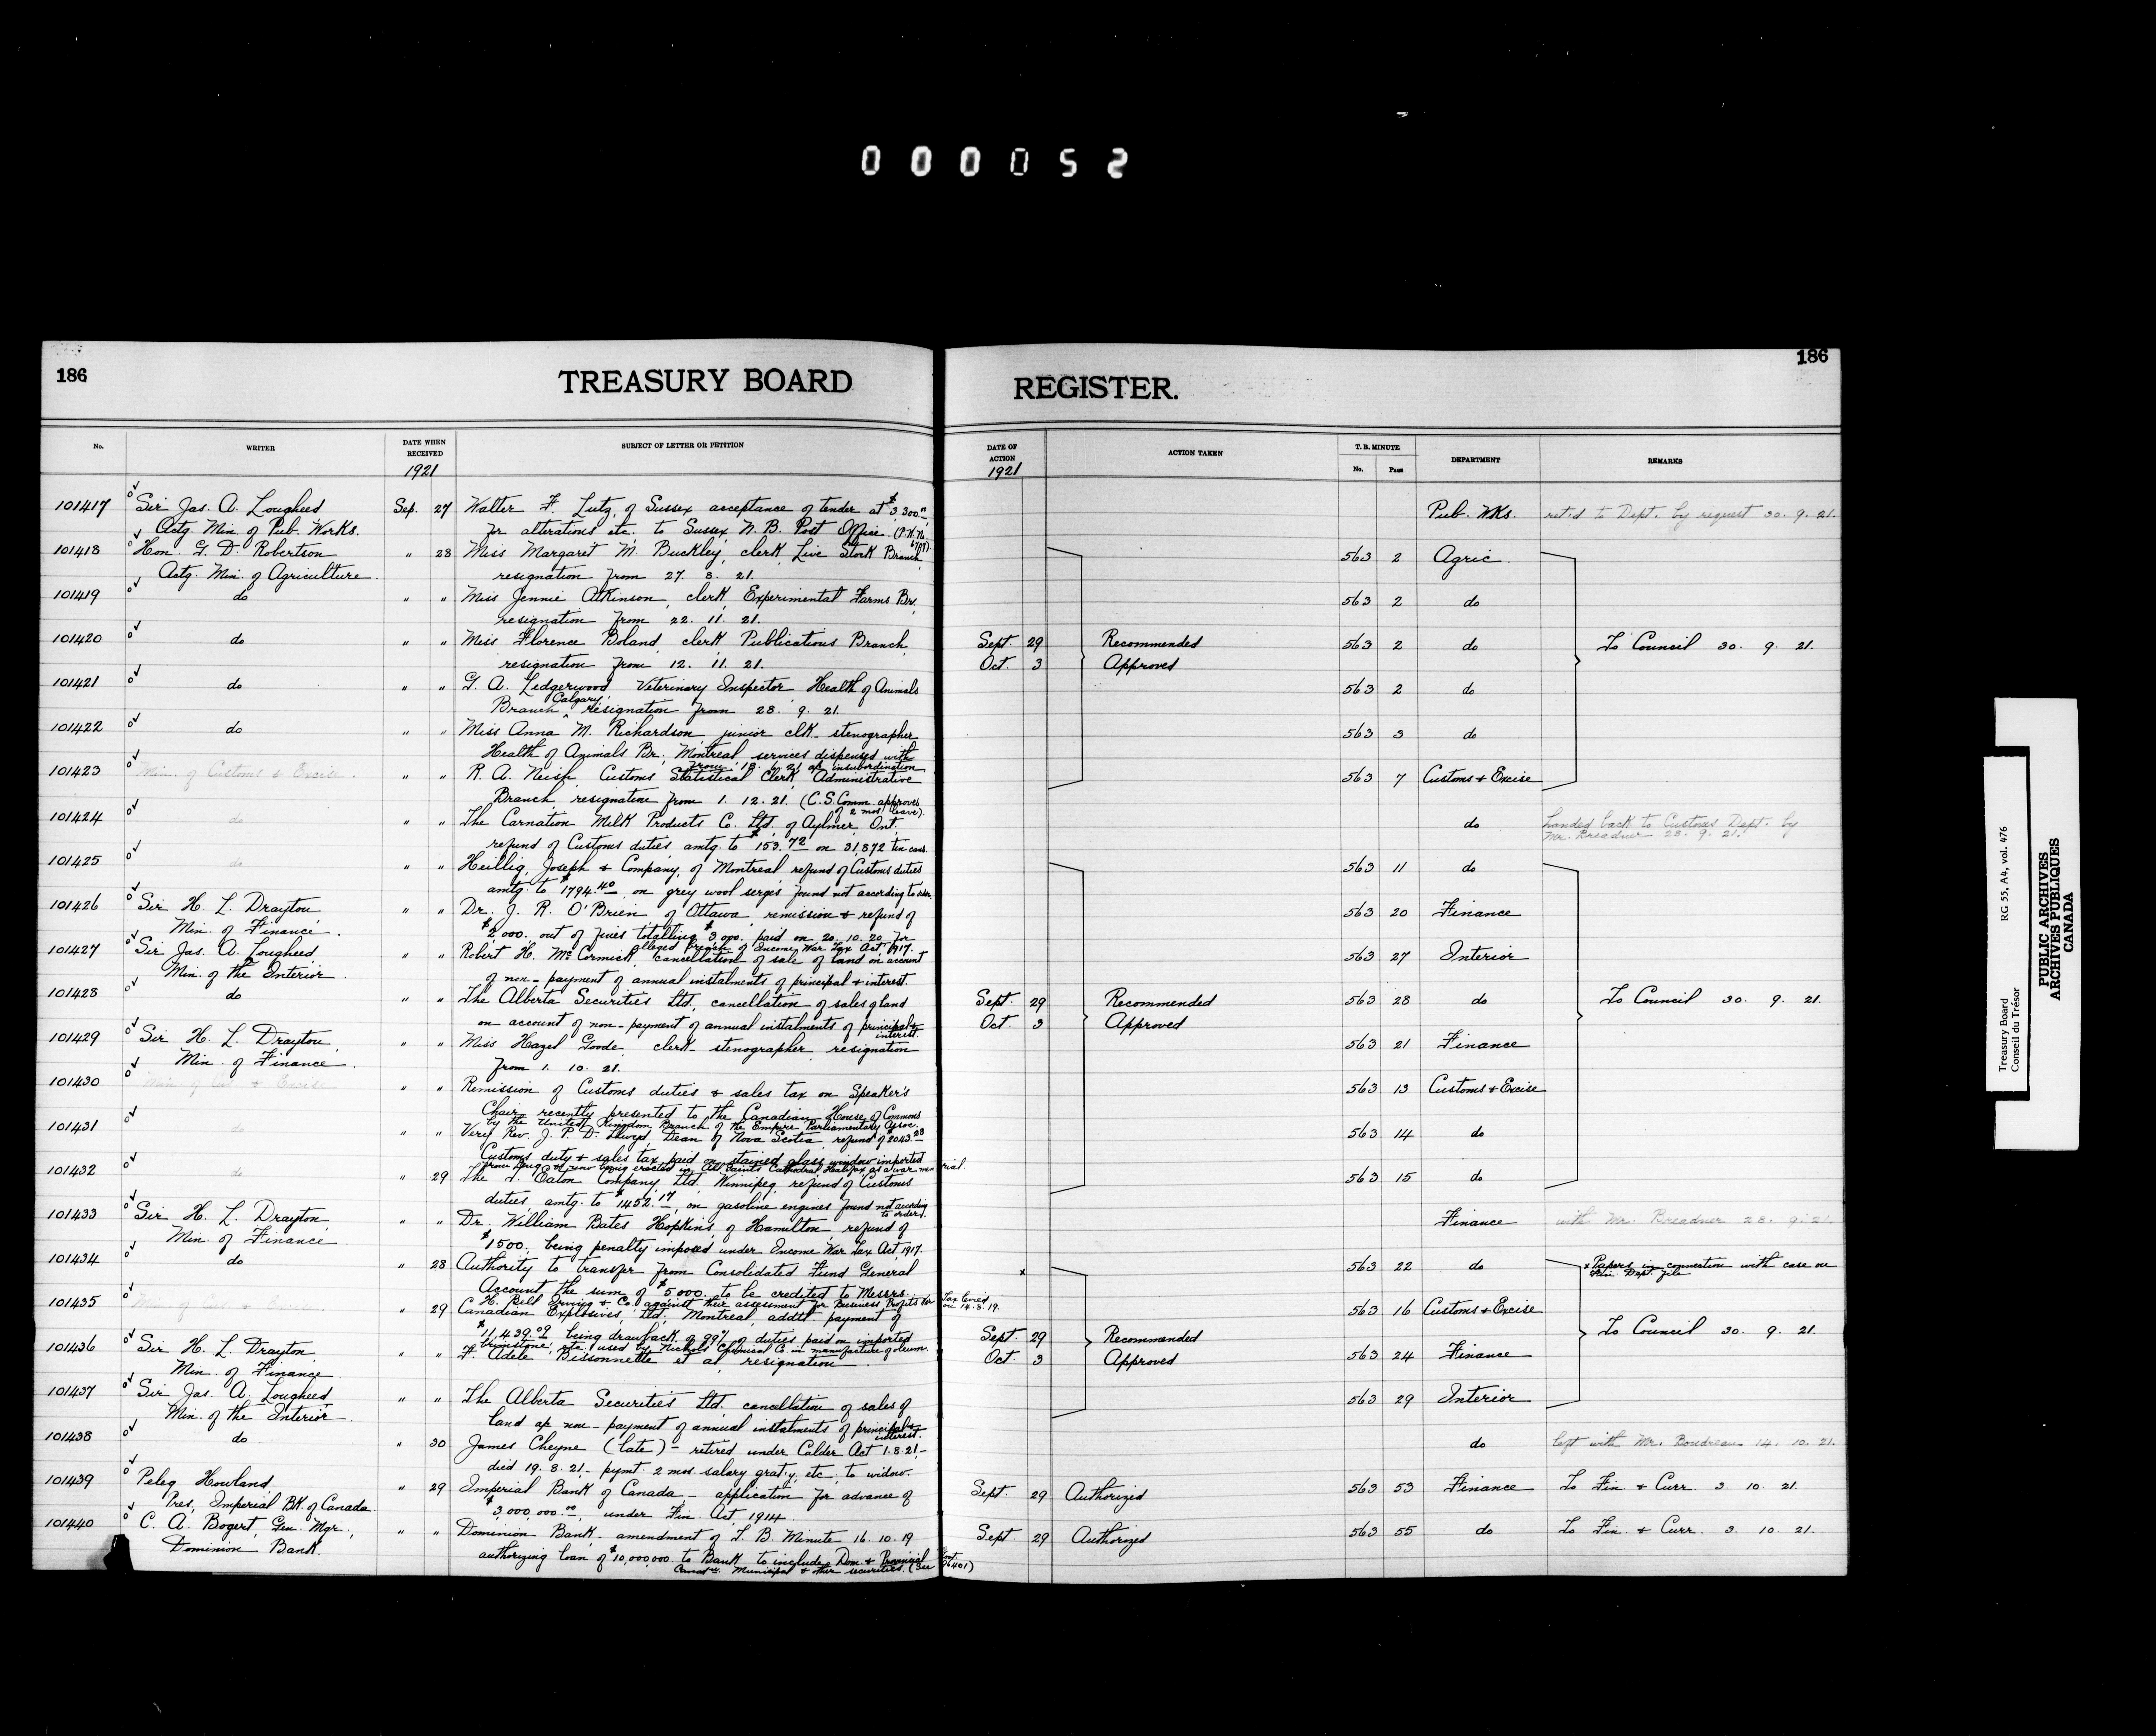 000052
186
TREASURY BOARD
REGISTER.
186
No. WRITER DATE WHEN RECEIVED SUBJECT OF LETTER OR PETITION DATE OF ACTION ACTION TAKEN T. B. MINUTE DEPARTMENT REMARKS
1921 1921 No. Page
101417 Sir Jas. A. Lougheed Sep. 27 Walter F. Lutz, of Sussex acceptance of tender at $3,300.00 Pub. Wks. ret'd to Dept. by request 30. 9. 21.
Actg. Min. of Pub. Works. for alterations etc. to Sussex N. B. Post Office
101418 Hon. G. D. Robertson " 28 Miss Margaret M. Buckley, clerk Live Stock Branch 563 2 Agric.
Actg. Min. of Agriculture. resignation from 27. 8. 21.
101419 do " " Miss Jennie Atkinson, clerk, Experimental Farms Br. 563 2 do
resignation from 22. 11. 21.
101420 do " " Miss Florence Boland, clerk Publications Branch, Sept. 29 Recommended 563 2 do To Council 30. 9. 21.
resignation from 12. 11. 21. Oct. 3 Approved
101421 do " " G. A. Ledgerwood Veterinary Inspector Health of Animals 563 2 do
Branch Calgary, resignation from 28. 9. 21.
101422 do " " Miss Anna M. Richardson junior clk-stenographer 563 3 do
Health of Animals Br., Montreal services dispensed with
insubordination
101423 Min. of Customs & Excise. " " R. A. Neish Customs Statistical Clerk, Administrative 563 7 Customs & Excise
Branch, resignation from 1. 12. 21. (C.S. Comm. approves
of 2 mos leave).
101424 do " " The Carnation Milk Products Co. Ltd. of Aylmer, Ont. do handed back to Customs Dept. by
refund of Customs duties amtg. to $153.72 on 31,872 tin cans. Mr. Breadner 28. 9. 21.
101425 do " " Heillig, Joseph & Company, of Montreal refund of Customs duties 563 11 do
amtg. to $1794.40 on grey wool serges found not according to order
101426 Sir H. L. Drayton " " Dr. J. R. O'Brien of Ottawa, remission & refund of 563 20 Finance
Min. of Finance. $2,000. out of fines totalling $3,000. paid on 20. 10. 20 for
alleged breach of Income War Tax Act 1917.
101427 Sir Jas. A. Lougheed " " Robert H. McCormick, cancellation of sale of land on account 563 27 Interior
Min. of the Interior of non-payment of annual instalments of principal & interest.
101428 do " " The Alberta Securities Ltd. cancellation of sales of land Sept. 29 Recommended 563 28 do To Council 30. 9. 21.
on account of non-payment of annual instalments of principal & interest. Oct. 3 Approved
101429 Sir H. L. Drayton, " " Miss Hazel Goode, clerk-stenographer resignation 563 21 Finance
Min. of Finance from 1. 10. 21.
101430 Min. of Cus. & Excise " " Remission of Customs duties & sales tax on Speaker's 563 13 Customs & Excise
Chair recently presented to the Canadian House of Commons
by the United Kingdom Branch of the Empire Parliamentary Assoc.
101431 do " " Very Rev. J. P. D. Llwyd, Dean of Nova Scotia refund of 563 14 do
Customs duty & sales tax paid on stained glass window imported
from Eng. & now being erected in All Saints Cathedral Halifax as a war memorial.
101432 do " 29 The T. Eaton Company Ltd. Winnipeg refund of Customs 563 15 do
duties, amtg. to $1452.17, on gasoline engines found not according to order.
101433 Sir H. L. Drayton " " Dr. William Bates Hopkins of Hamilton refund of Finance with Mr. Breadner 28. 9. 21.
Min. of Finance $1500. being penalty imposed under Income War Tax Act, 1917.
101434 do " 28 Authority to transfer from Consolidated Fund General x 563 22 do x Papers in connection with case on
Account, the sum of $5000. to be credited to Messrs. Fin. Dept. file
against their assessment for Business Profits War Tax
101435 " 29 Canadian Explosives Ltd. Montreal, addtl. payment of 563 16 Customs & Excise
$11,439.09 being drawback of 99% of duties paid on imported Sept. 29 Recommended To Council 30. 9. 21.
brimstone, etc. used by Nichols Chemical Co. in manufacture of oleum.
101436 Sir H. L. Drayton " " Adele Bissonnette et al resignation Oct. 3 Approved 563 24 Finance
Min. of Finance
101437 Sir Jas. A. Lougheed " " The Alberta Securities Ltd. cancellation of sales of 563 29 Interior
Min. of the Interior land a/c non-payment of annual instalments of principal & interest.
101438 do " 30 James Cheyne (late) - retired under Calder Act 1.8.21- do left with Mr. Boudreau 14. 10. 21.
died 19. 8. 21 - pymt. 2 mos. salary grat'y, etc., to widow.
101439 Peleg Howland, " 29 Imperial Bank of Canada - application for advance of Sept. 29 Authorized 563 53 Finance To Fin. & Curr. 3. 10. 21.
Pres. Imperial Bk. of Canada $3,000,000.00 under Fin. Act, 1914.
101440 C. A. Bogert, Gen. Mgr., " " Dominion Bank - amendment of T. B. Minute 16. 10. 19 Sept. 29 Authorized 563 55 do To Fin. & Curr. 3. 10. 21.
Dominion Bank. authorizing loan of $10,000,000. to Bank to include Dom. & Provincial
Municipal & other securities.
Treasury Board RG 55, A4, vol. 476
Conseil du Trésor
PUBLIC ARCHIVES
ARCHIVES PUBLIQUES
CANADA